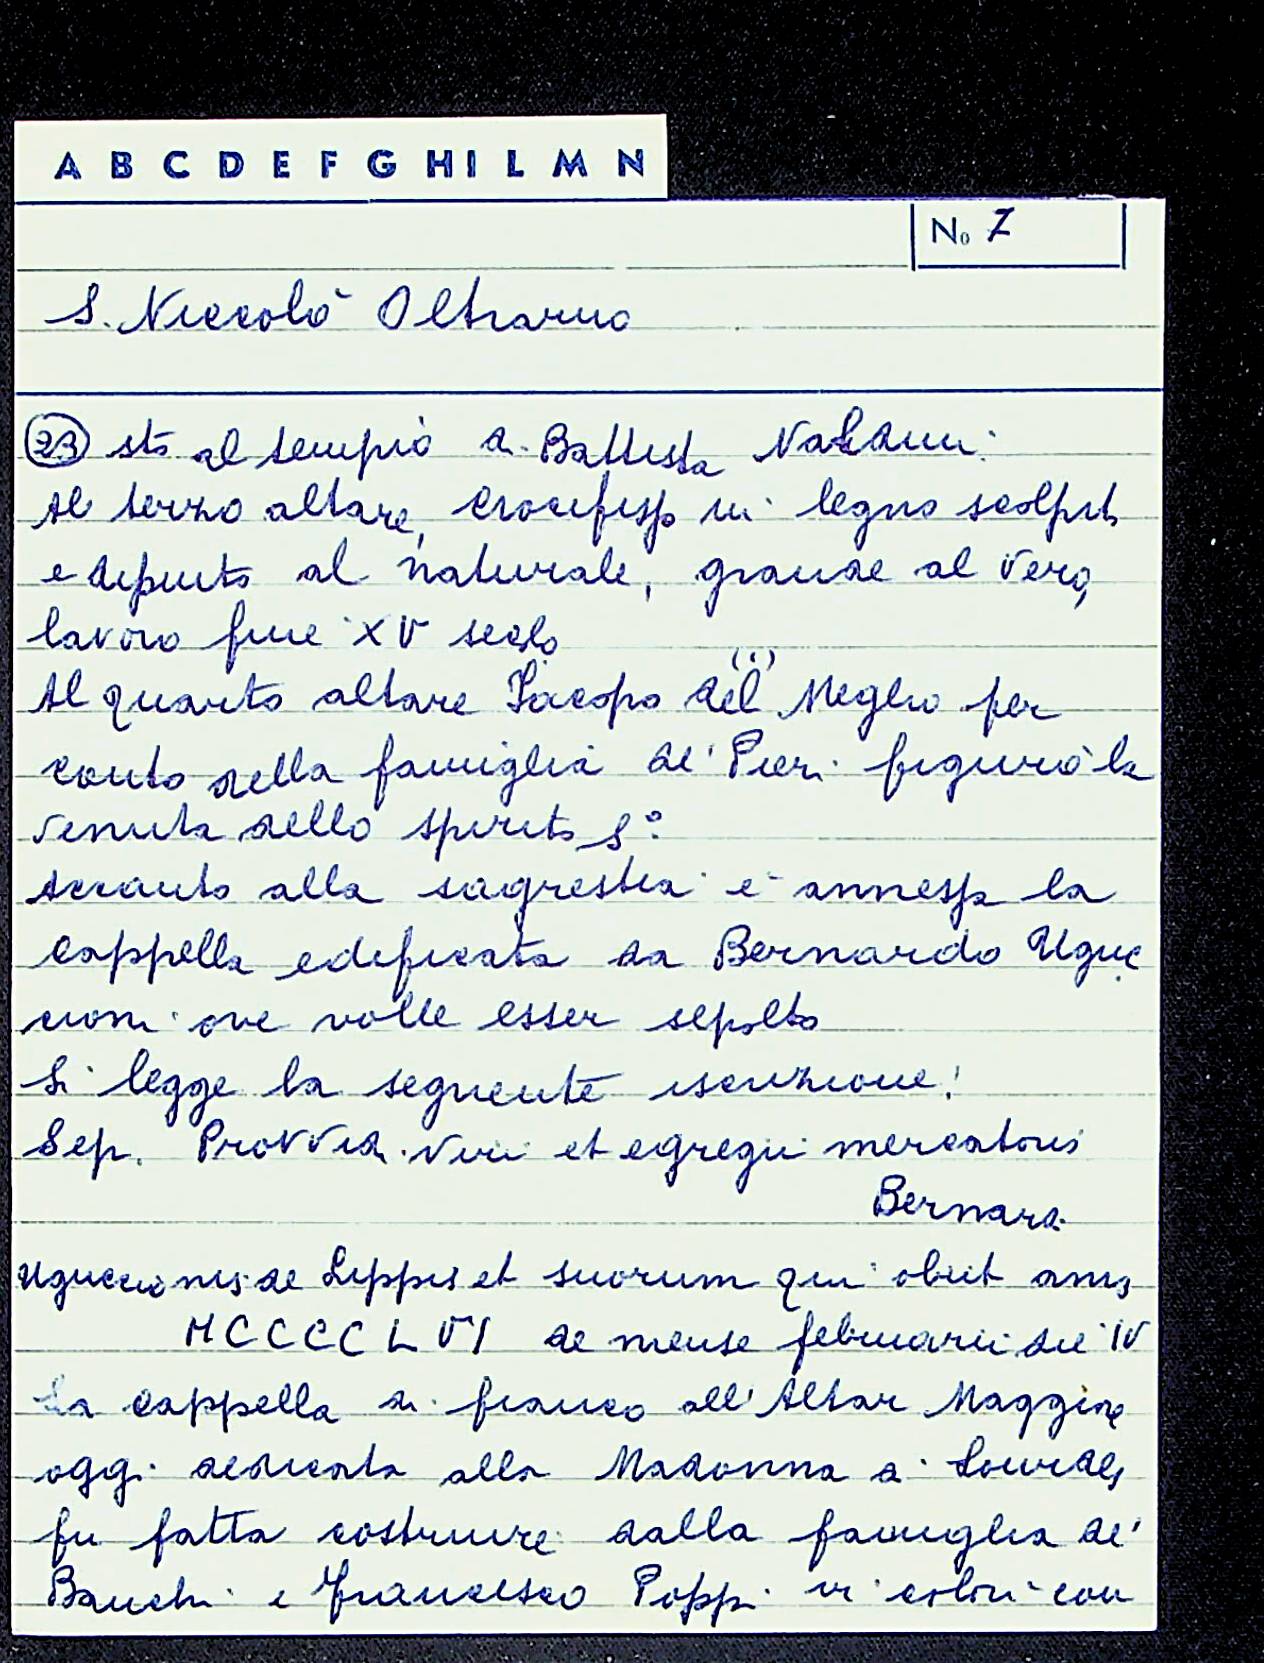 A B C D E F G H I L M N
No 7
S. Niccolò Oltrarno
(23) sto al tempio di Battista Naldini
Al terzo altare, crocifisso in legno scolpito
e dipinto al naturale, grande al vero,
lavoro fine XV secolo
Al quarto altare Jacopo del (i) Meglio per
conto della famiglia de' Pieri figurò la
venuta dello spirito So
Accanto alla sagrestia è annessa la
cappella edificata da Bernardo Uguc
cioni ove volle esser sepolto
Si legge la seguente iscrizione:
Sep. Provvid. Viri et egregii mercatoris
Bernardi
Uguccionis de Lippis et suorum qui obiit annis
MCCCCLVI de mense februarii die IV
La cappella di fianco all'Altar Maggiore
oggi dedicata alla Madonna di Lourdes
fu fatta costruire dalla famiglia de'
Banchi e Francesco Poppi vi colorì con